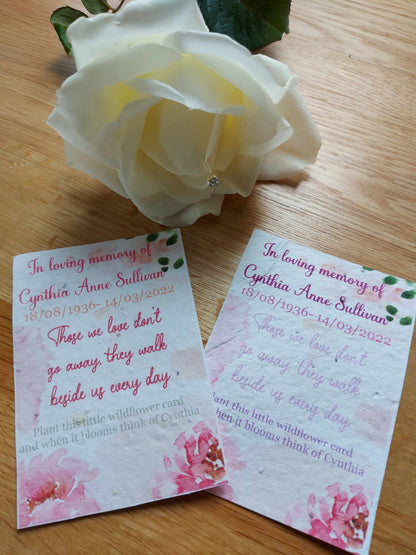 In loving memory of
Cynthia Anne Sullivan
18/08/1936- 14/03/2022
Those we love don't
go away, they walk
beside us every day
Plant this little wildflower card
and when it blooms think of Cynthia
In loving memory of
Cynthia Anne Sullivan
18/08/1936- 14/03/2022
Those we love don't
go away, they walk
beside us every day
Plant this little wildflower card
and when it blooms think of Cynthia